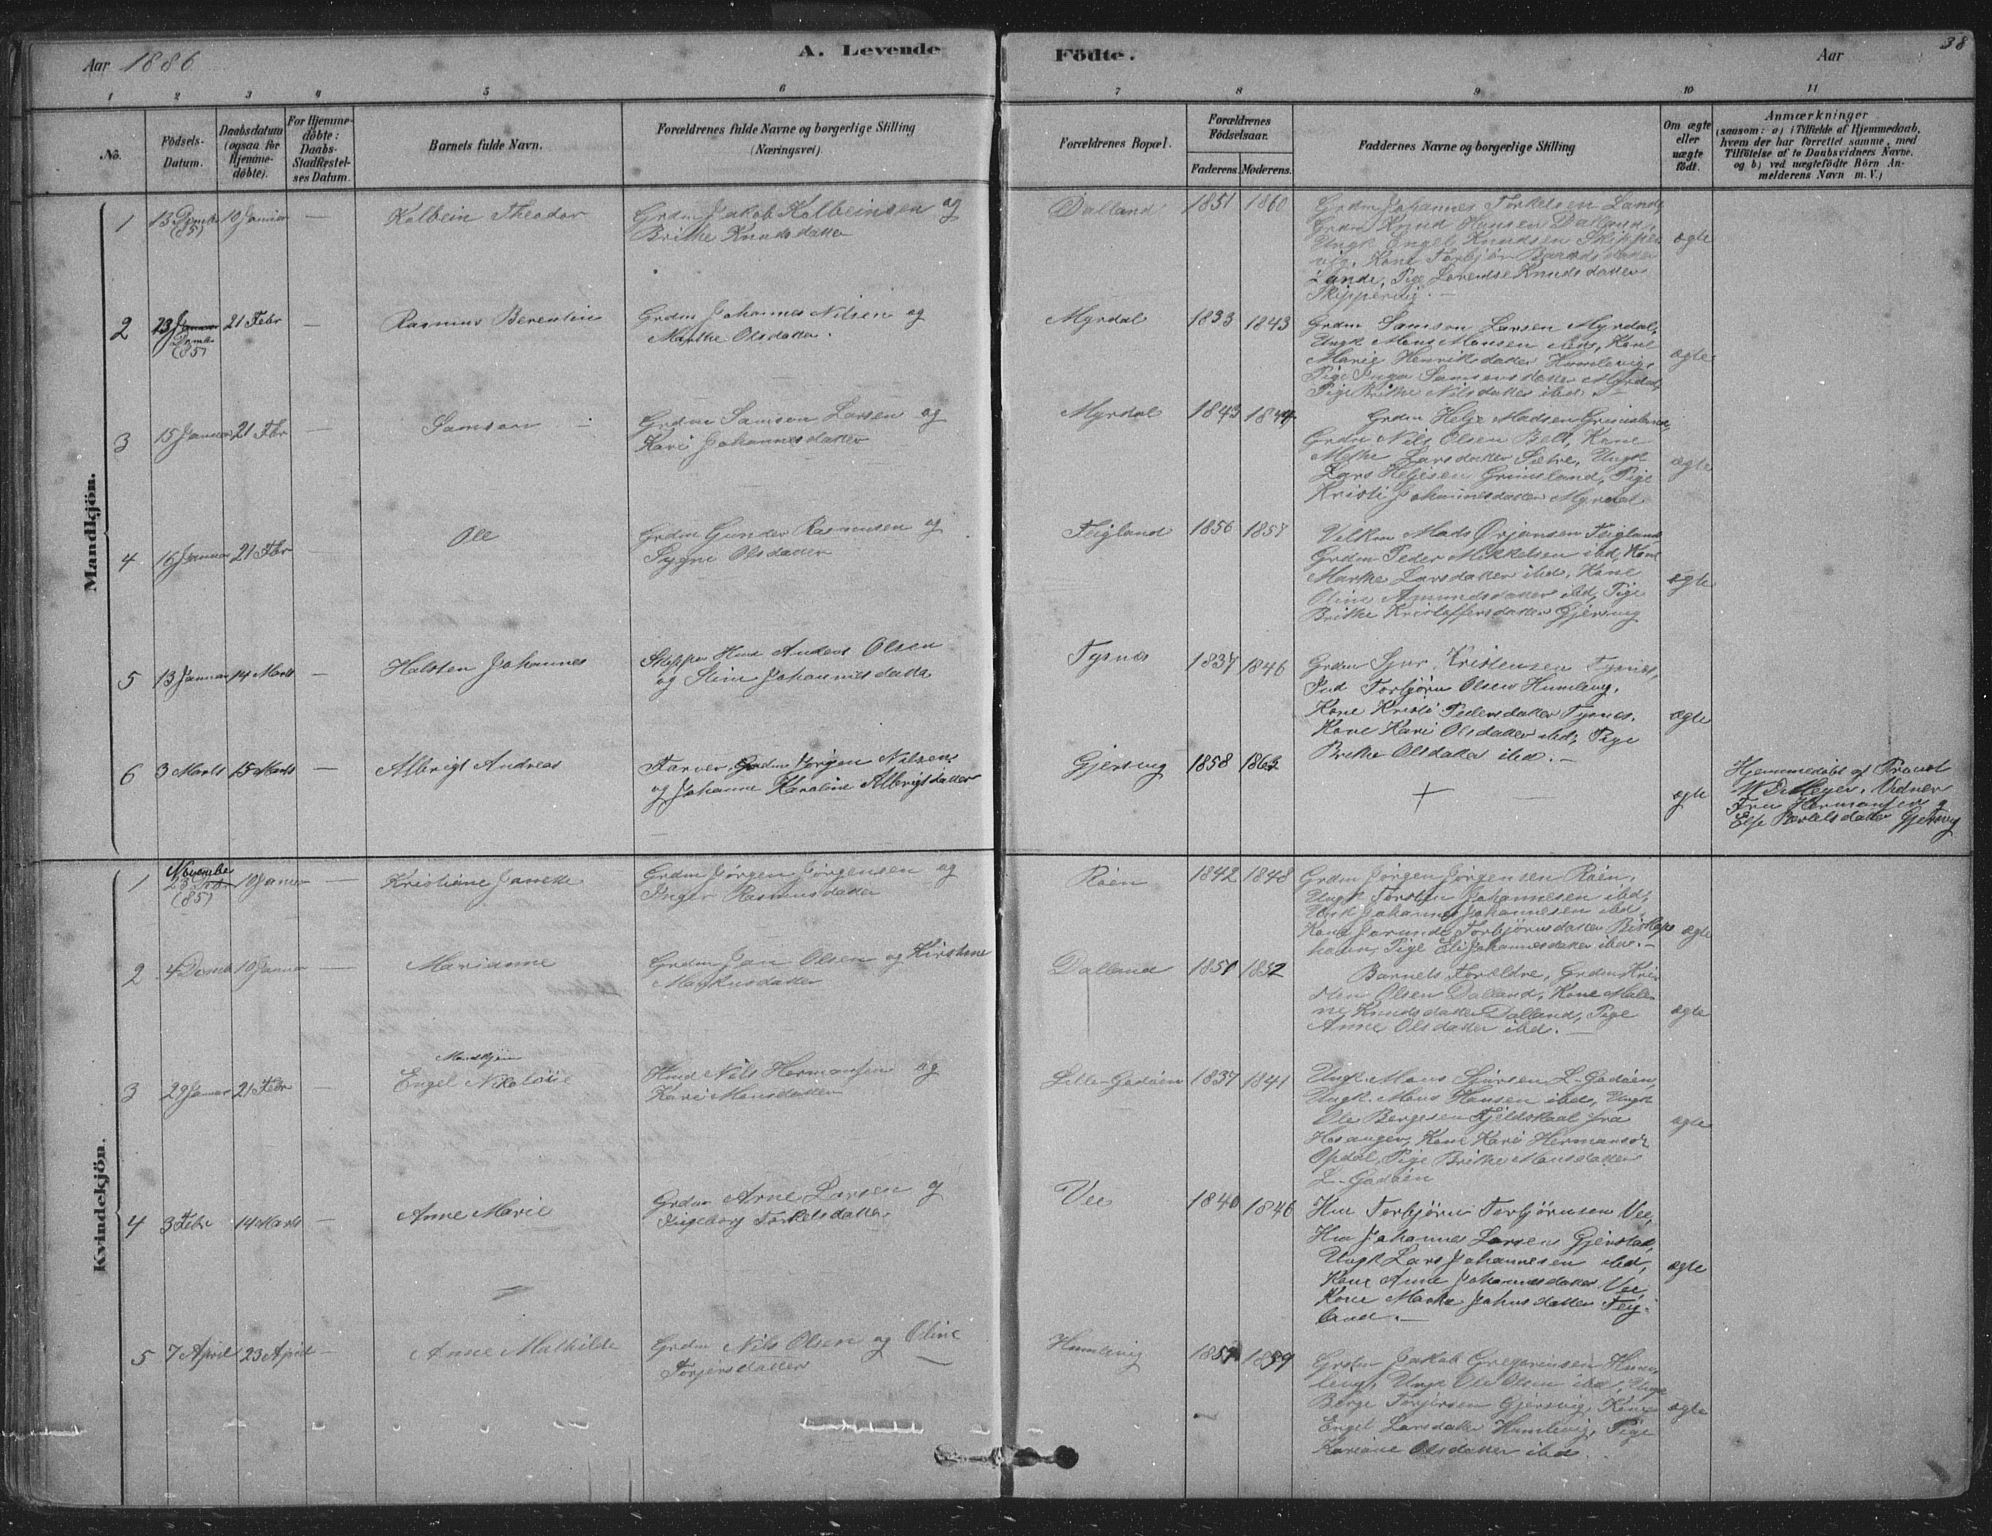 Aar 1886
A. Levende
Födte.
Aar
38
1 2 3 4 5 6 7 8 9 10 11
No.
Födsels-
Datum.
Daabsdatum
(ogsaa for
Hjemme-
döbte).
For Hjemme-
döbte:
Daabs-
Stadfæstel-
ses Datum.
Barnets fulde Navn.
Forældrenes fulde Navne og borgerlige Stilling
(Næringsvei).
Forældrenes Bopæl.
Forældrenes
Födselsaar.
Faderens. Moderens.
Faddernes Navne og borgerlige Stilling
Om ægte
eller
uægte
födt.
Anmærkninger
(saasom: a) i Tilfælde af Hjemmedaab,
hvem der har forrettet samme, med
Tilföielse af to Daabsvidners Navne,
og b) ved uægtefödte Börn An-
melderens Navn m. V.)
Mandkjön.
1 13 Decmb (85) 10 Januar — Kolbein Theodor
Grdm Jakob Kolbeinsen og
Brithe Knudsdatter
Dalland 1851 1860
Grdm Johannes Torkelsen Lande,
Grdm Knud Hansen Dalland,
Ungk Engel Knudsen Skipper-
vig, Kone Torbjør Baardsdatter
Lande, Pige Lorentse Knudsdatter
Skippervig. —
ægte
2 13 Januar Decmb (85) 21 Febr — Rasmus Berentin
Grdm Johannes Nilsen og
Marthe Olsdatter.
Myrdal 1833 1843
Grdm Samson Larsen Myrdal,
Ungk Mons Monsen Kone
Marie Henriksdatter Humlevig,
Pige Inga Samsonsdatter Myrdal,
Pige Brithe Nilsdatter ibd. —
ægte
3 15 Januar 21 Febr — Samson —
Grdm Samson Larsen og
Kari Johannesdatter
Myrdal 1843 1844
Grdm Helje Madsen Grimsland,
Grdm Nils Olsen Belt, Kone
Mette Larsdatter Sætre, Ungk
Lars Heljesen Grimsland, Pige
Kristi Johannesdatter Myrdal
ægte
4 16 Januar 21 Febr — Ole
Grdm Gunder Rasmusen og
Sygni Olsdatter
Teigland 1856 1857
Mads Ørjansen Teigland
Grdm Peder Mikkelsen ibd, Kone
Marthe Larsdatter ibd, Kone
Oline Amundsdatter ibd, Pige
Brithe Kristoffersdatter Gjersvig
ægte
5 13 Januar 14 Marts — Halsten Johannes
Skipper Hmd Anders Olsen
og Stine Johannesdatter
Tysnes 1837 1846
Grdm Sjur Kristensen Tysnes,
Ind Torbjørn Olsen Humlevig,
Kone Kristi Pedersdatter Tysnes.
Kone Kari Olsdatter ibd, Pige
Brithe Olsdatter ibd. —
ægte
6 3 Marts 15 Marts — Albrigt Andreas
Farver, Grdm Jørgen Nilsen
og Johanne Karoline Albrigtsdatter
—
Gjersvig 1858 1863
+ —
ægte
Hjemmedøbt af Provst
Meyer, Vidner
Fru Hermansen og
Else Bertelsdatter Gjersvig
Kvindekjön.
1 Novembe 23 (85) 10 Januar — Kristiane Janette
Grdm Jørgen Jørgensen og
Inger Rasmusdatter
Røen 1842 1848
Grdm Jørgen Jørgensen Røen,
Ungk Torsten Johannesen ibd,
Ungk Johannes Johannesen ibd.
Kone Torbjørnsdatter Biskops-
havn, Pige Eli Johannesdatter ibd. —
ægte
2 4 Decmb 10 Januar — Marianne
Grdm Jan Olsen og Kirstine
Markusdatter
Dalland 1851 1852
Barnets Forældre, Grdm Kri-
sten Olsen Dalland, Kone Male-
ne Knudsdatter Dalland, Pige
Anne Olsdatter ibd. —
ægte
3 29 Januar 21 Febr — Mandkjøn
Engel Nikolaie
Hmd Nils Hermansen og
Kari Monsdatter
Lille-Godøen 1837 1841
Ungk. Mons Sjursen L-Godøen,
Ungk. Mons Hansen ibd, Ungk
Ole Bergesen Fjeldskaal fra
Kone Kari Hermansd.
Opdal, Pige Brithe Monsdatter
L-Godøen
ægte
4 3 Febr 14 Marts — Anne Marie
Grdm Arne Larsen og
Ingeborg Torkelsdatter
Vee 1840 1846
Hm Torbjørn Torbjørnsen Vee,
Hm Johannes Larsen Gjerstad,
Ungk Lars Johannesen ibd,
Kone Anne Johannesdatter Vee,
Kone Marthe Johnsdatter Teig-
land. —
ægte
5 7 April 23 April — Anne Mathilde
Grdm Nils Olsen og Oline
Torjersdatter —
Humlevig 1857 1859
Grdm Jakob Gregoriusen Hum-
levig, Ungk Ole Olsen ibd, Ungk
Berge Torjersen Gjersvig, Kone
Engel Larsdatter Humlevig, Pige
Kariane Olsdatter ibd.
ægte